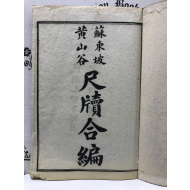 蘇東坡
黃山谷
尺牘合編